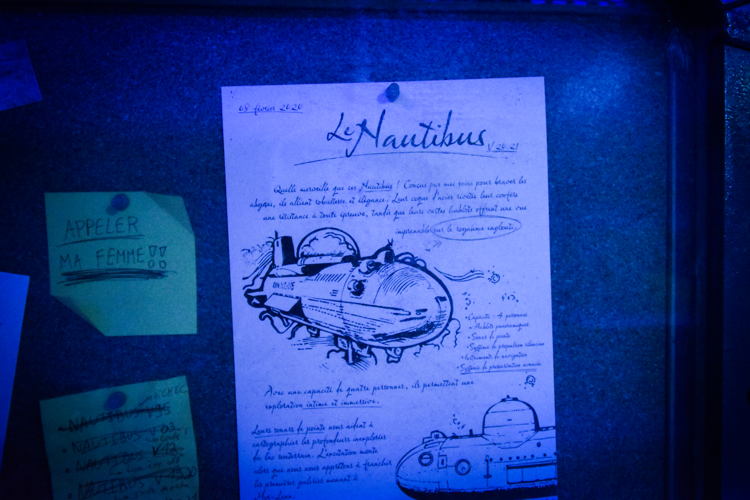 08 février 2020
Le Nautibus
V 26.21
Quelle merveille que ces Nautibus ! Conçus par mes soins pour braver les
abysses, ils allient robustesse et élégance. Leur coque d'acier rivetée leur confère
une résistance à toute épreuve, tandis que leurs vastes hublots offrent une vue
imprenable sur le royaume englouti.
• Capacité : 4 personnes
• Hublots panoramiques
• Sonar de pointe
• Système de propulsion silencieux
• Instruments de navigation
• Système de pressurisation avancée
Avec une capacité de quatre personnes, ils permettent une
exploration intime et immersive.
Leurs sonars de pointe nous aident à
cartographier les profondeurs inexplorées
du lac souterrain. L'excitation monte
alors que nous nous apprêtons à franchir
les premières galeries menant à
APPELER
MA FEMME !!
ECHEC
NAUTIBUS
• NAUTIBUS V 02
• NAUTIBUS
• NAUTIBUS